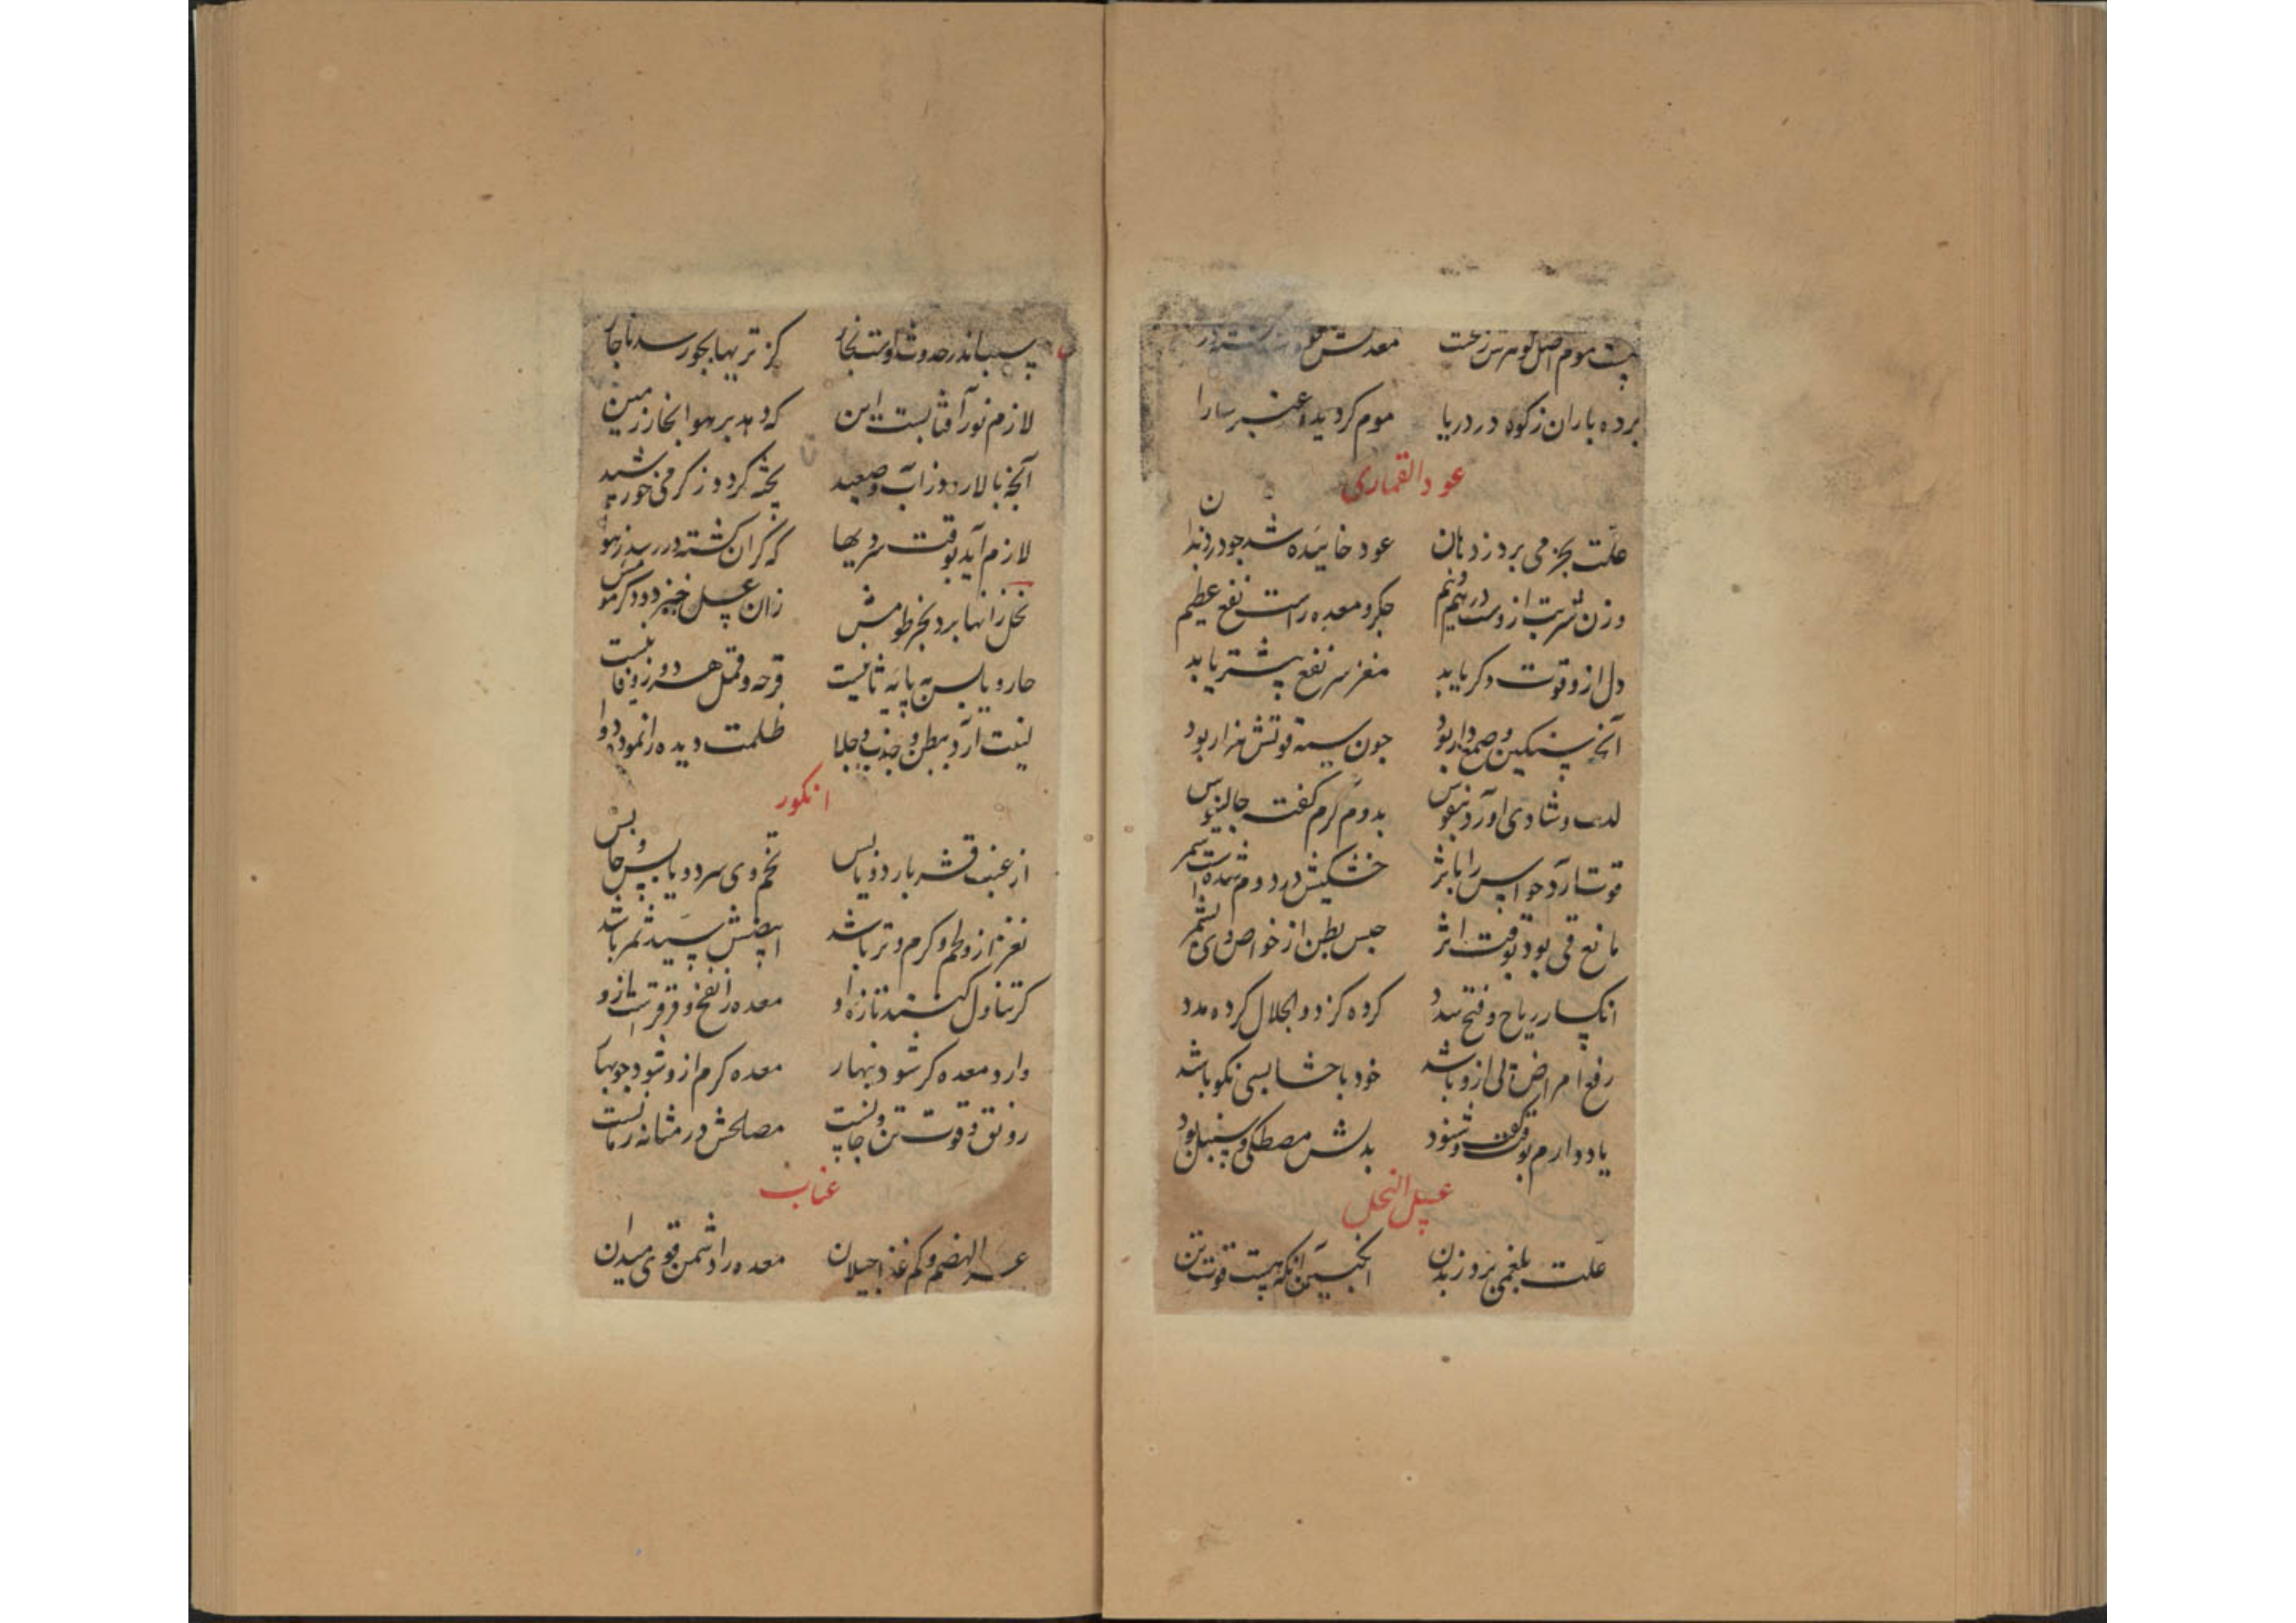 موم اصل کوهرش زنخست معدنش
برده باران ز کوه در دریا موم کردید و عنبر سارا
عود القماری
علت بخر می برد ز دهان عود خاییده شد چو در دندان
وزن شربت ازوست درهم و نیم جکر و معده راست نفع عظیم
دل ازو قوت دکر یابد مغز سر نفع بیشتر یابد
آنچه سنکین و صمغ دار بود چون سیه قوتش هزار بود
لذت و شادی آورد بنفوس بدوم کرم کفت جالینوس
قوت آرد حواس را باثر خشکیش در دوم شده است سمر
مانع قی بود بوقت اثر حبس بطن از خواص وی بشمر
انکسار ریاح و فتح سدد کرده کز ذو الجلال کرده مدد
رفع امراض ازو باشد خود باحشا بسی نکو باشد
یاد دارم بوقت کفت و شنود بدلش مصطکی و سنبل بود
عسل النحل
علت بلغمی برد ز بدن انکبین آنکه هست قوت تن
سبب اندر حدوث اوست بخار کز تریها بجو رسد ناچار
لازم نور آفتابست این که دهد بر هوا بخار زمین
آنچه بالا رود ز آب و صعید پخته کردد ز کرمی خورشید
لازم آید بوقت سردیها که کران کشته در رسد ز هوا
نحل زانها برد بخرطومش زان عسل خیزد و دکر مومش
حار و یابس به پایه ثانیست قرحه و قمل هر دو زو فانیست
لینت آرد ببطن و جذب و جلا ظلمت دیده را نمود دوا
انکور
از عنب قشر بارد و یابس تخم وی سرد و یابس و حابس
نغز ازو لحم و کرم و تر باشد ابیضش سید ثمر باشد
کر تناول کنند تازه او معده را نفخ و قرقرست ازو
وارد معده کر شود بنهار معده کرم ازو شود چو بهار
رونق و قوت تن و جانست مصلحش در مثانه رمانست
عناب
عسر الهضم و کم غذا جیلان معده را دشمن قوی میدان